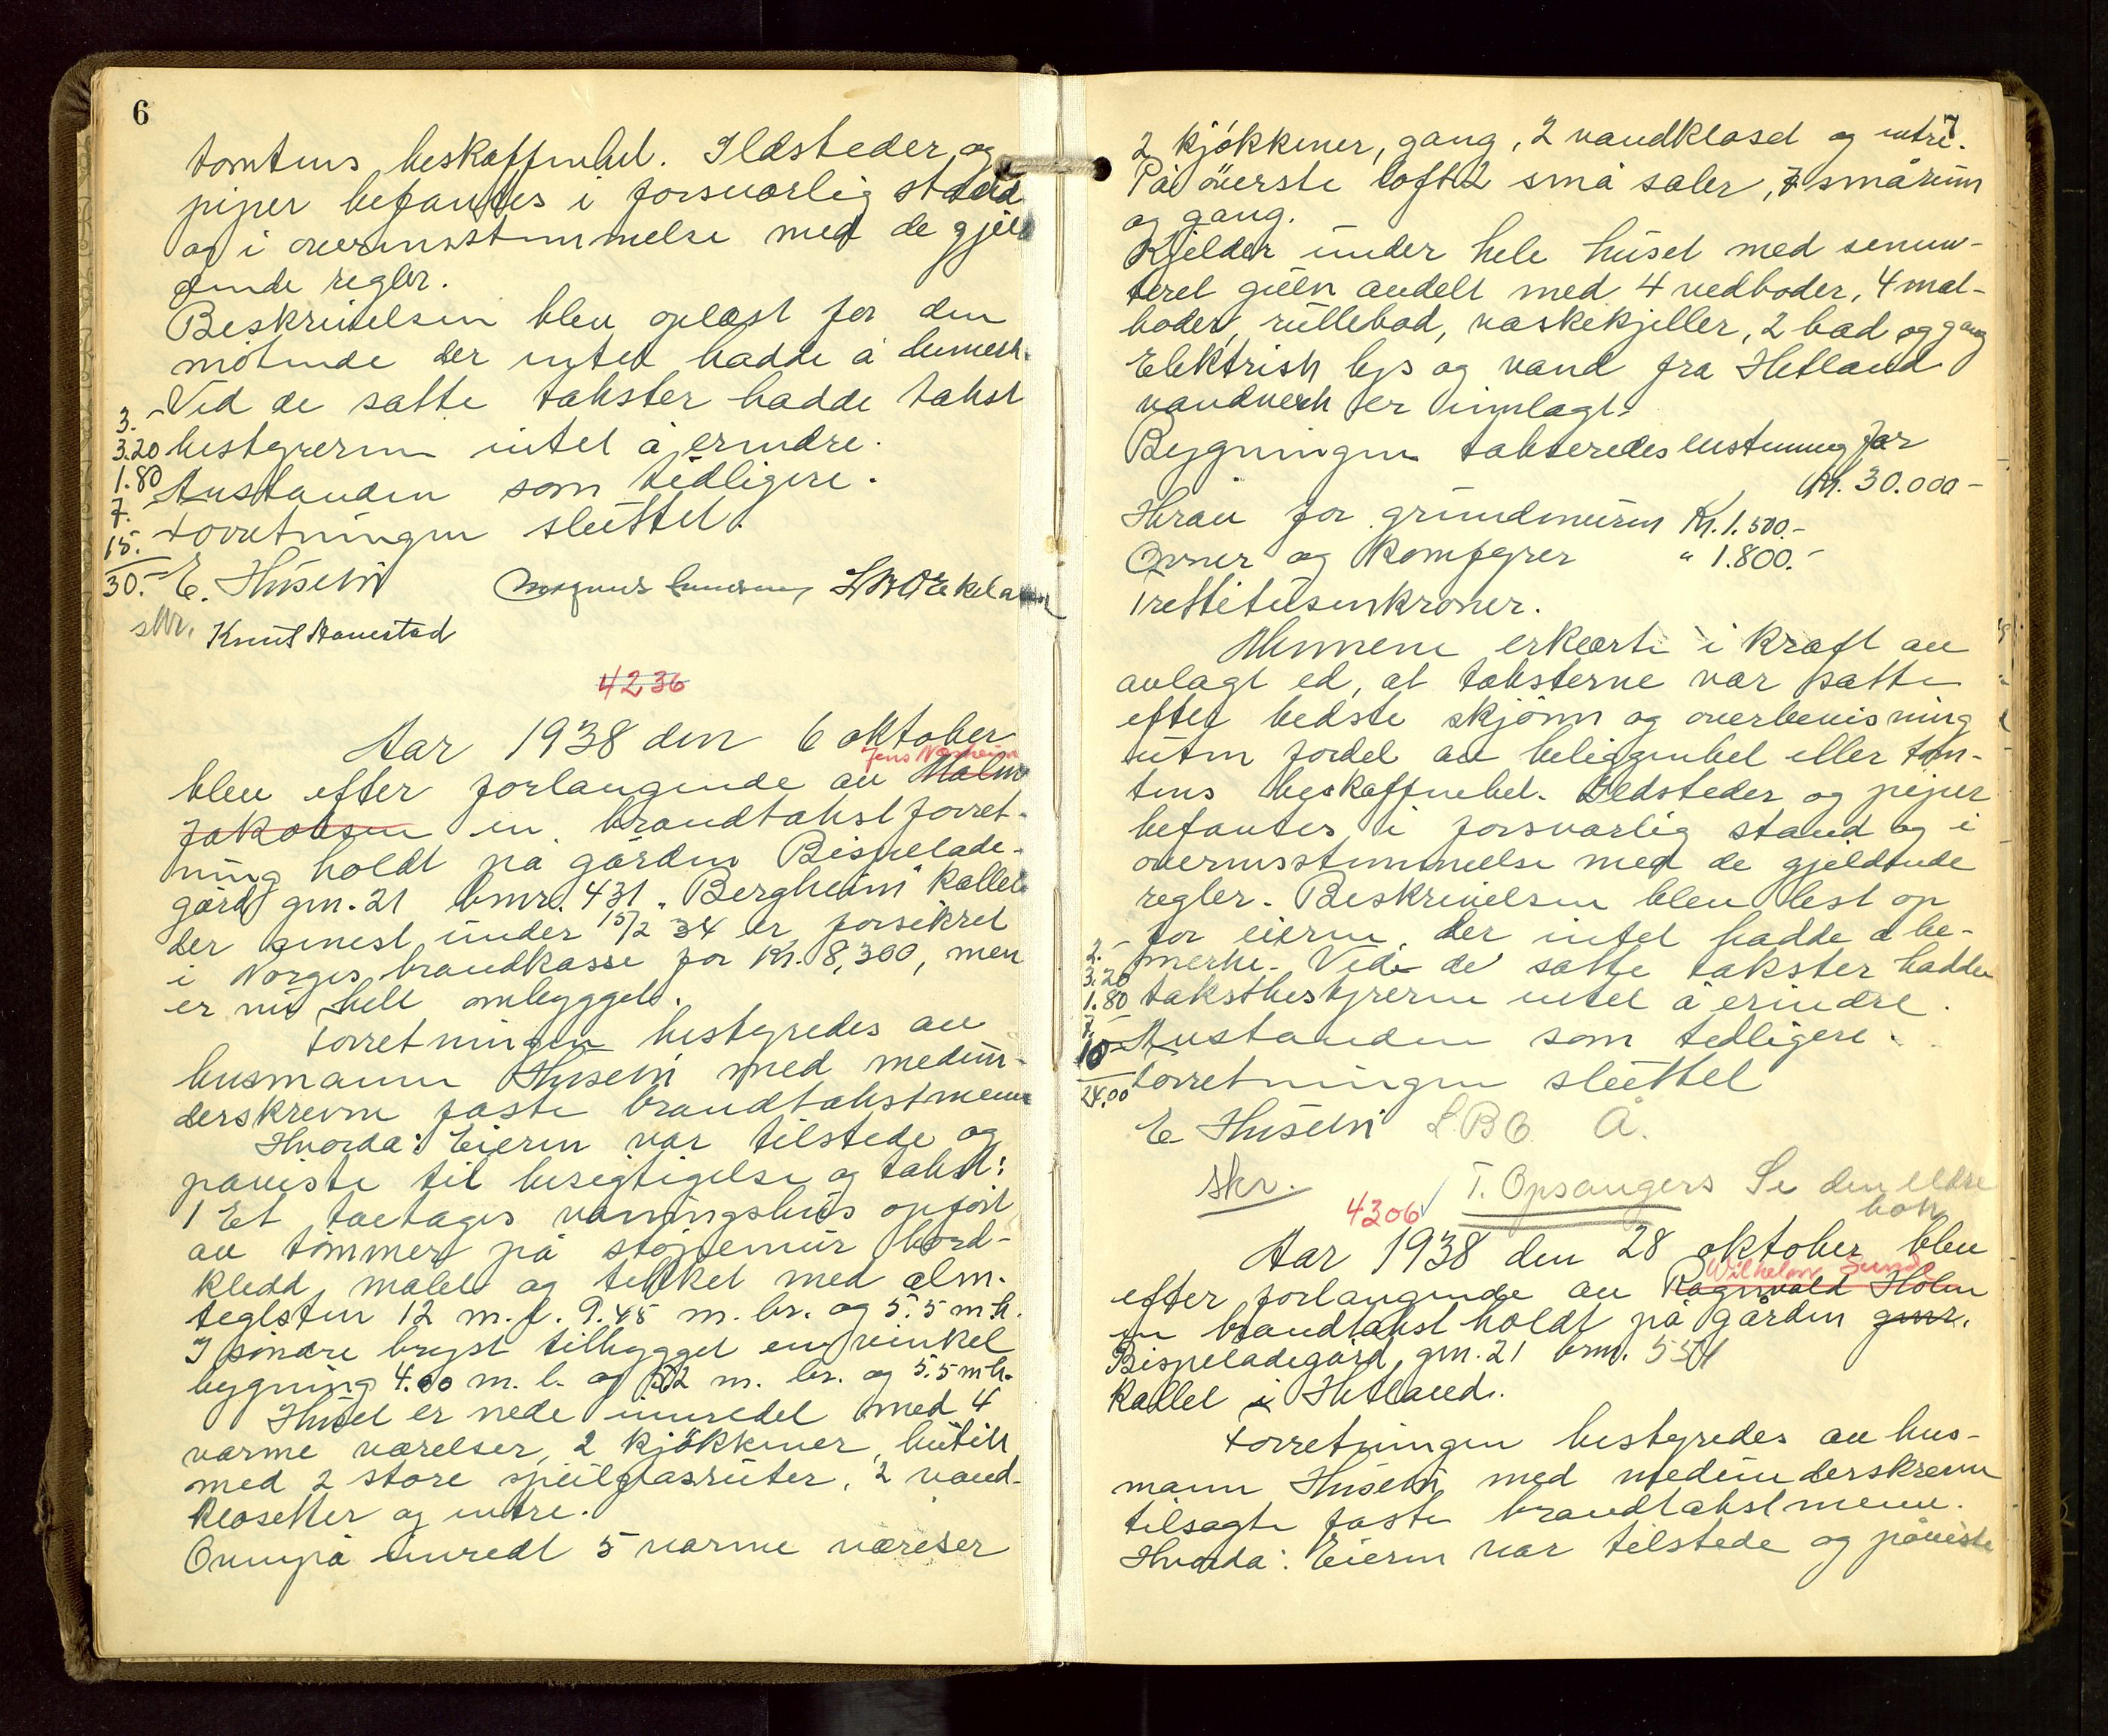 6
tomtens beskaffenhet. Ildsteder og
piper befantes i forsvarlig stand
og i overensstemmelse med de gjel
dende regler.
Beskrivelsen blev oplæst for den
møtende der intet hadde å bemerk.
Ved de satte takster hadde takst
bestyreren intet å erindre.
Anstanden som tidligere.
Forretningen sluttet.
3.-
3.20
1.80
7.
15.
30.-
E. Husebø
skr. Knut Haavestad
4236
Aar 1938 den 6 oktober
Jens Næsheim
blev efter forlangende av Malm
Jakobsen en brandtakstforret-
ning holdt på gården Bispelade-
gård gnr. 21 bnr. 431 "Bergheim" kallet
der senest under 15/2 34 er forsikret
i Norges brandkasse for Kr. 8,300, men
er nu helt ombygget.
Forretningen bestyredes av
husmann Husebø med medun-
derskrevne faste brandtakstmenn
Hvorda: Eieren var tilstede og
paviste til besigtigelse og takst:
1 Et toetages våningshus opført
av tømmer på støpemur bord-
kledd, malet og tekket med alm.
teglsten 12 m. l. 9.45 m. br. og 5.5 m h.
I søndre bryst tilbygget en vinkel
bygning 4.00 m. l. og m. br. og 5.5 m h.
Huset er nede innredet med 4
varme værelser, 2 kjøkkener, butikk
med 2 store speilglasruter, 2 vand-
klosetter og entre.
Ovenpå innredt 5 varme værelser
7
2 kjøkkener, gang, 2 vandkloset og entre.
På øverste loft 2 små saler, 7 smårum
og gang.
Kjelder under hele huset med semen-
teret gulv avdelt med 4 vedboder, 4 mat-
boder, rullebod, vaskekjeller, 2 bad og gang
Elektrisk lys og vand fra Hetland
vandverk er innlagt.
Bygningen taksteredes enstemmig for
Kr. 30.000-
Herav for grundmuren Kr. 1.500.-
Ovner og komfyrer " 1.800.-
Trettitusenkroner.
Mennene erklærte i kraft av
avlagt ed, at taksterne var satte
efter bedste skjønn og overbevisning
uten fordel av beliggenhet eller tom-
tens beskaffenhet. Ildsteder og piper
befantes i forsvarlig stand og i
overensstemmelse med de gjeldende
regler. Beskrivelsen blev lest op
for eieren, der intet hadde å be-
merke. Ved de satte takster hadde
takstbestyreren intet å erindre.
Anstanden som tidligere.
Forretningen sluttet
2.-
3.20
1.80
7.-
10-
24.00
E Husebø L.B.O. Å.
skr. T. Opsangers Se den eldre
bok
4306
Aar 1938 den 28 oktober blev
Wilhelm Sund
efter forlangende av Ragnvald Holm
en brandtakst holdt på gården gnr.
Bispeladegård, gnr. 21 bnr. 554
kallet i Hetland.
Forretningen bestyredes av hus-
mann Husebø med medunderskrevne
tilsagte faste brandtakstmenn.
Hvorda: Eieren var tilstede og påviste